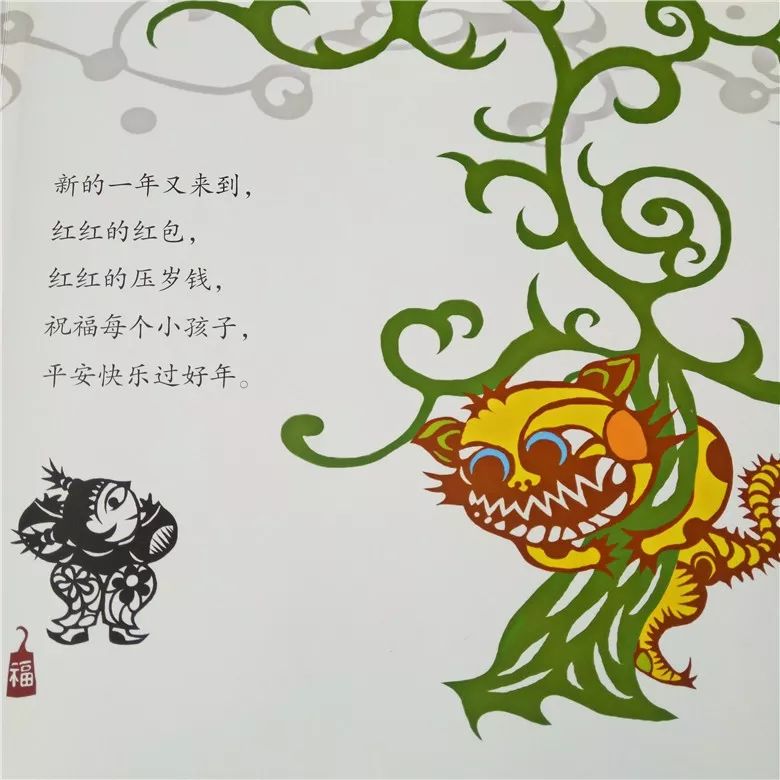 新的一年又来到，
红红的红包，
红红的压岁钱，
祝福每个小孩子，
平安快乐过好年。
福